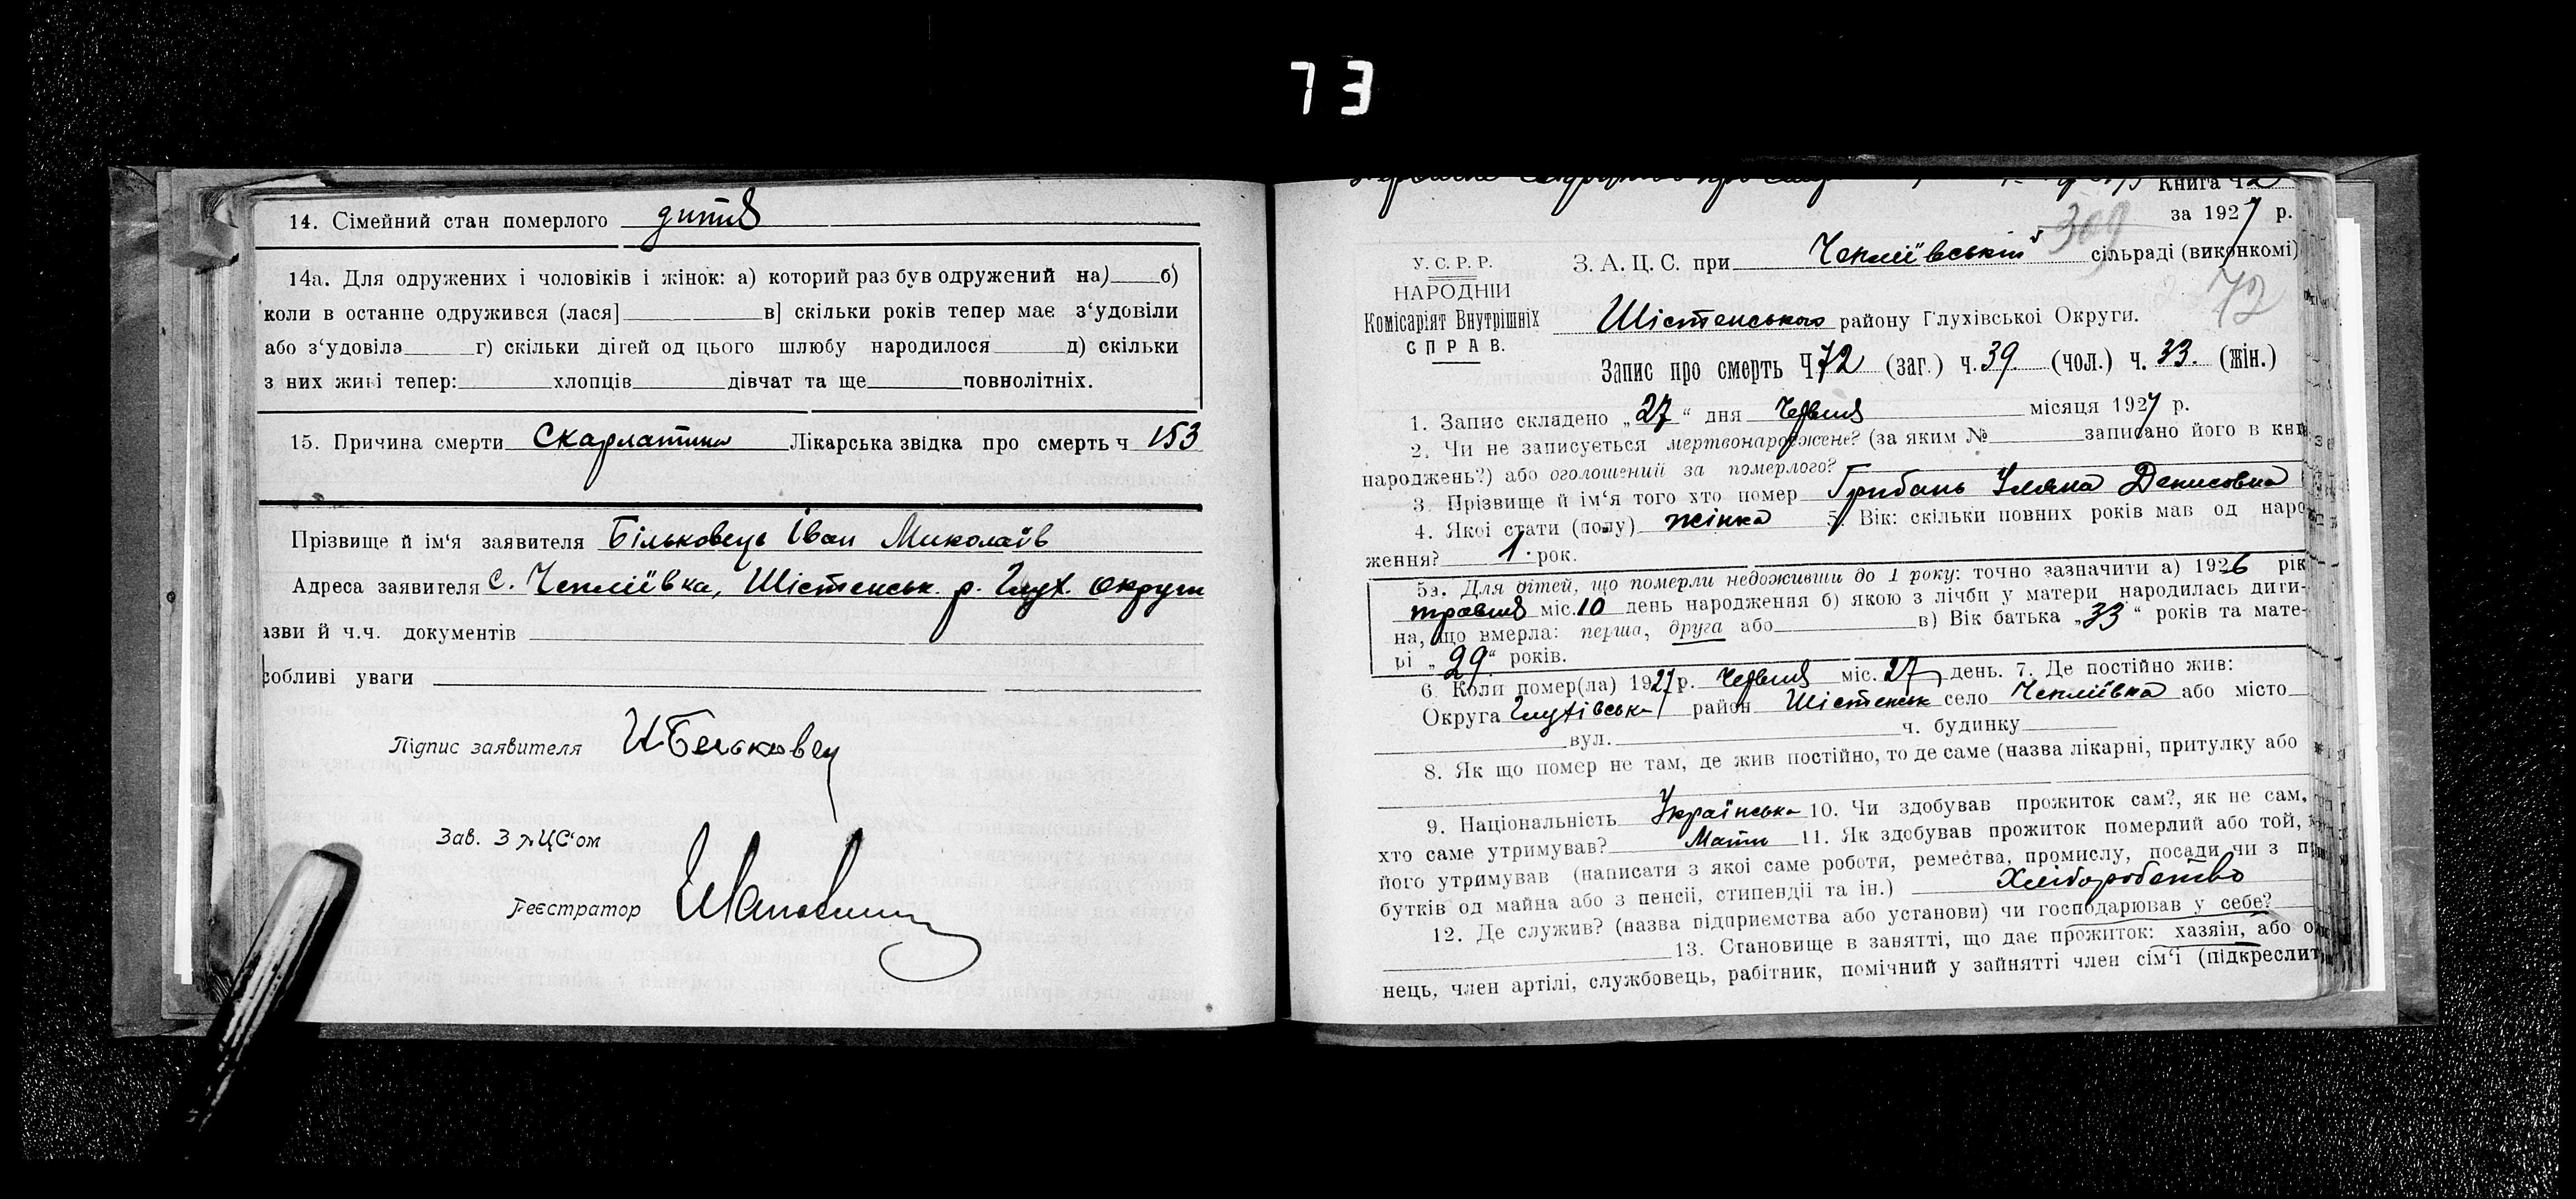 73
14. Сімейний стан померлого дитя
14а. Для одружених і чоловіків і жінок: а) которий раз був одружений на) б)
коли в останнє одружився (лася] в] скільки років тепер має з‘удовіли
або з‘удовіла г) скільки дітей од цього шлюбу народилося д) скільки
з них живі тепер: хлопців дівчат та ще повнолітніх.
15. Причина смерти Скарлатина Лікарська звідка про смерть ч 153
Прізвище й ім‘я заявителя Більковець Іван Миколаїв
Адреса заявителя с. Чепліївка, Шістенськ. р. Глух. округи
азви й ч.ч. документів
собливі уваги
Підпис заявителя И Бельковец
Зав. ЗАЦС‘ом
Реєстратор
Книга ч 2
за 1927 р.
309
У. С. Р. Р. З. А. Ц. С. при Чепліївській сільраді (виконкомі)
НАРОДНІЙ 72
Комісаріят Внутрішніх Шістенського району Глухівської Округи.
СПРАВ.
Запис про смерть Ч 72 (заг.) ч. 39. (чол.) ч. 33. (жін.)
1. Запис складено „27“ дня Червня місяця 1927 р.
2. Чи не записується мертвонароджене? (за яким № записано його в кни
народжень?) або оголошений за померлого?
3. Прізвище й ім‘я того хто помер Грибань Уляна Денисовна
4. Якої стати (полу) жінка 5. Вік: скільки повних років мав од наро
ження? 1 рок.
5а. Для дітей, що померли недоживши до 1 року: точно зазначити а) 1926 рік
травня міс. 10 день народження б) якою з лічби у матери народилась дити-
на, що вмерла: перша, друга або в) Вік батька „33“ років та мате-
рі „29“ років.
6. Коли помер(ла) 1927 р. Червня міс. 27 день. 7. Де постійно жив:
Округа Глухівська район Шістенськ село Чепліївка або місто
вул. ч. будинку
8. Як що помер не там, де жив постійно, то де саме (назва лікарні, притулку або
9. Національність Українська 10. Чи здобував прожиток сам?, як не сам,
хто саме утримував? Мати 11. Як здобував прожиток померлий або той,
його утримував (написати з якої саме роботи, ремества, промислу, посади чи з п
бутків од майна або з пенсії, стипендії та ін.) Хліборобство
12. Де служив? (назва підприємства або установи) чи господарював у себе?
13. Становище в занятті, що дає прожиток: хазяїн, або о
нець, член артілі, службовець, рабітник, помічний у зайнятті член сім‘ї (підкреслит